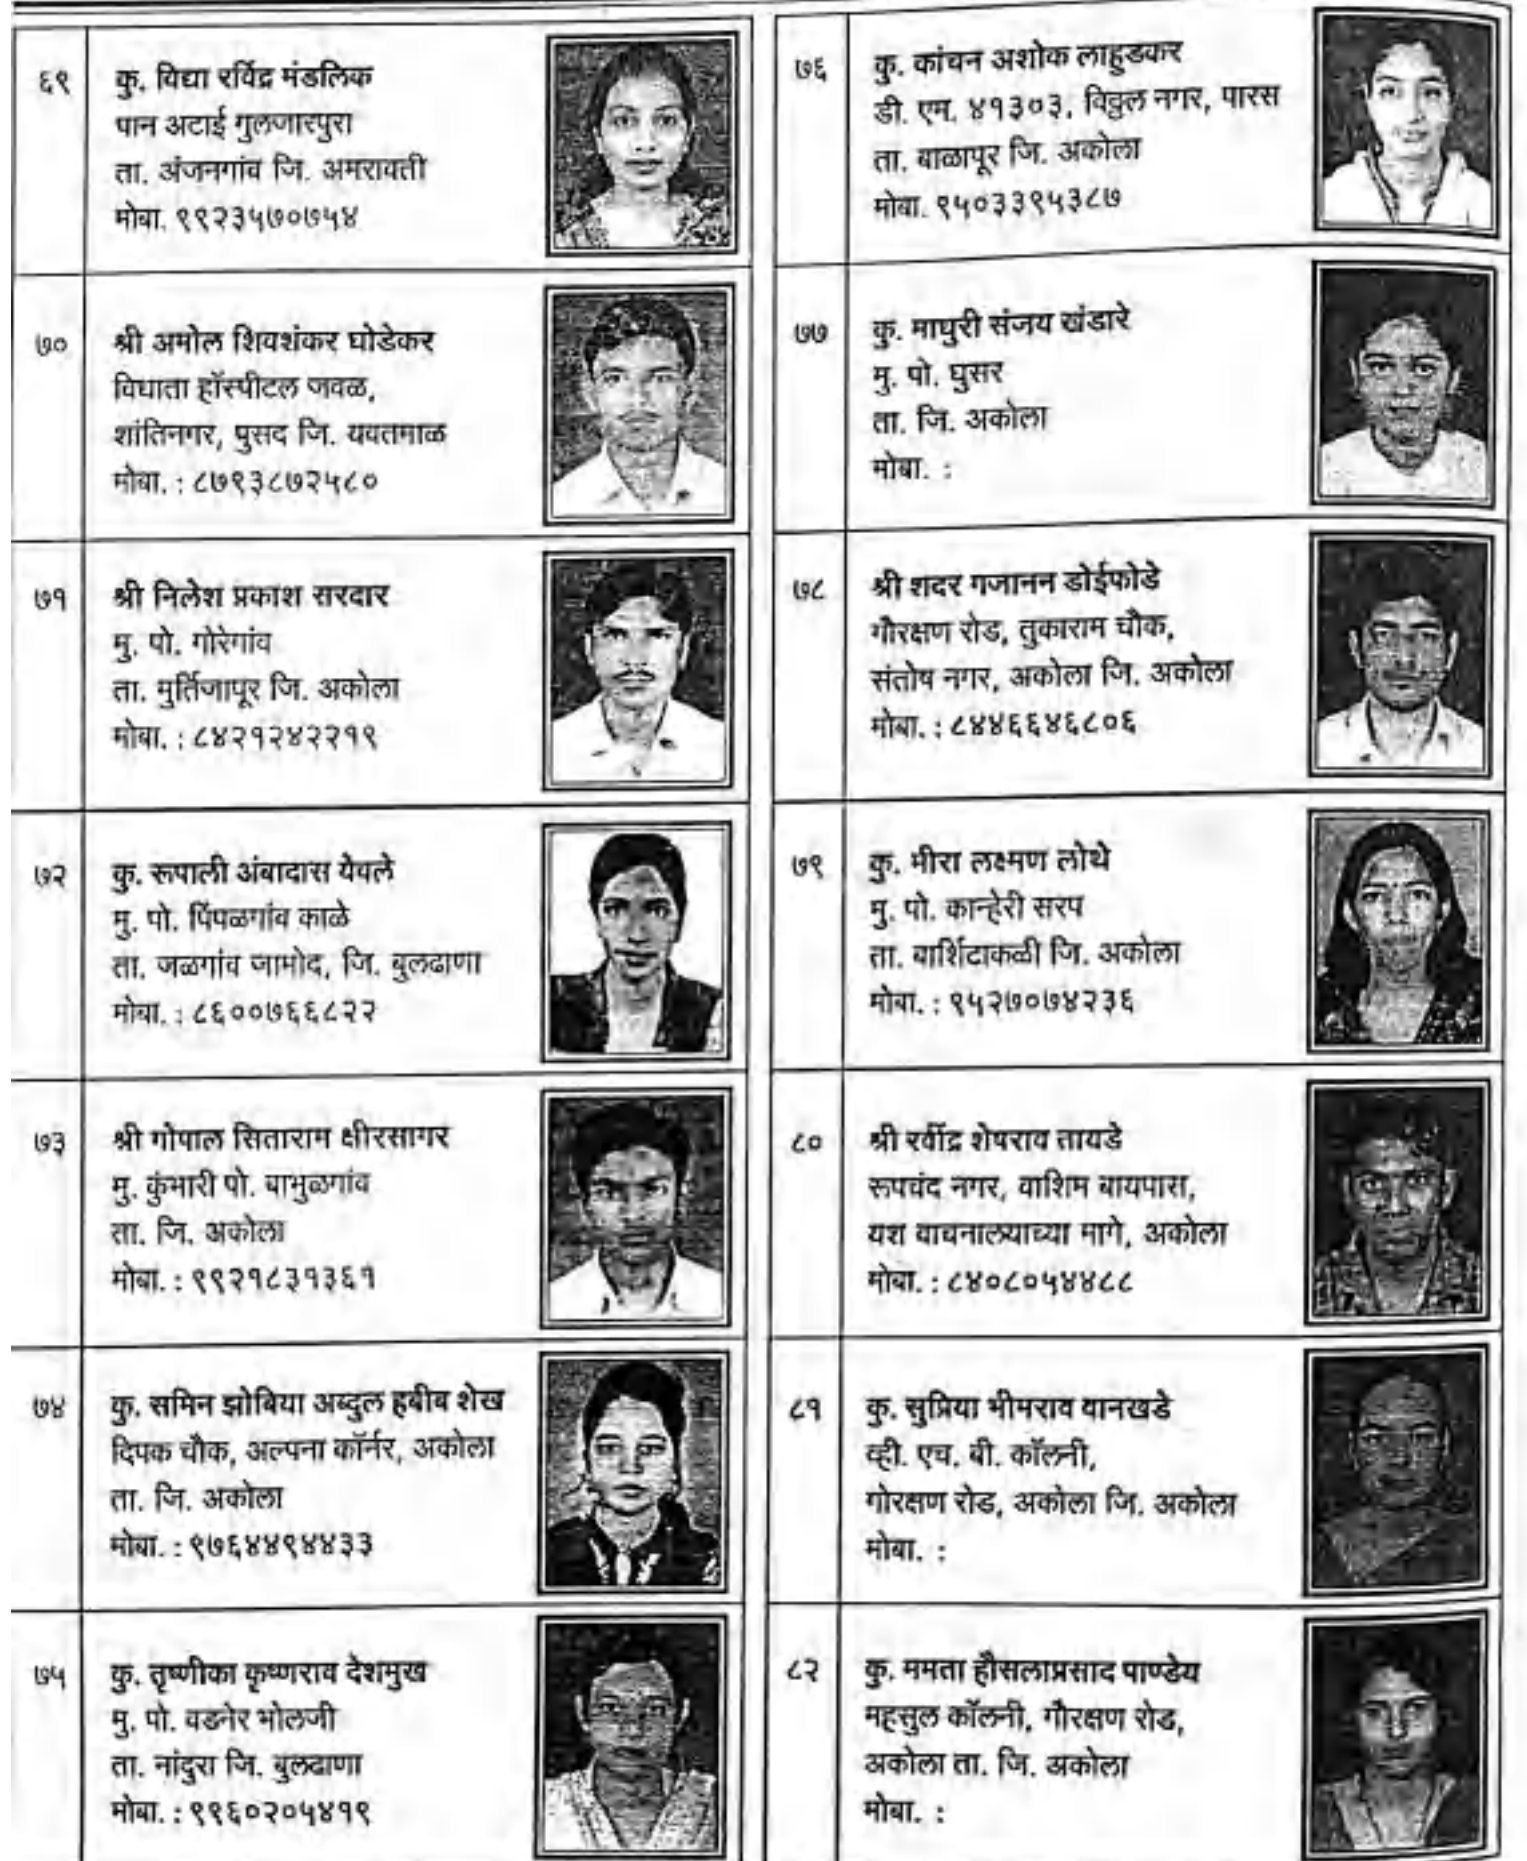 ६९
कु. विद्या रविंद्र मंडलिक
पान अटाई गुलजारपुरा
ता. अंजनगांव जि. अमरावती
मोबा. ९९२३५७०७५४
७०
श्री अमोल शिवशंकर घोडेकर
विधाता हॉस्पीटल जवळ,
शांतिनगर, पुसद जि. यवतमाळ
मोबा. : ८७९३८७२५८०
७१
श्री निलेश प्रकाश सरदार
मु. पो. गोरेगांव
ता. मुर्तिजापूर जि. अकोला
मोबा. : ८४२१२४२२१९
७२
कु. रूपाली अंबादास येवले
मु. पो. पिंपळगांव काळे
ता. जळगांव जामोद, जि. बुलढाणा
मोबा. : ८६००७६६८२२
७३
श्री गोपाल सिताराम क्षीरसागर
मु. कुंभारी पो. बाभुळगांव
ता. जि. अकोला
मोबा. : ९९२१८३१३६१
७४
कु. समिन झोबिया अब्दुल हबीब शेख
दिपक चौक, अल्पना कॉर्नर, अकोला
ता. जि. अकोला
मोबा. : ९७६४४९४४३३
७५
कु. तृष्णीका कृष्णराव देशमुख
मु. पो. वडनेर भोलजी
ता. नांदुरा जि. बुलढाणा
मोबा. : ९९६०२०५४१९
७६
कु. कांचन अशोक लाहुडकर
डी. एम. ४१३०३, विठ्ठल नगर, पारस
ता. बाळापूर जि. अकोला
मोबा. ९५०३३९५३८७
७७
कु. माधुरी संजय खंडारे
मु. पो. घुसर
ता. जि. अकोला
मोबा. :
७८
श्री शदर गजानन डोईफोडे
गौरक्षण रोड, तुकाराम चौक,
संतोष नगर, अकोला जि. अकोला
मोबा. : ८४४६६४६८०६
७९
कु. मीरा लक्ष्मण लोथे
मु. पो. कान्हेरी सरप
ता. बार्शिटाकळी जि. अकोला
मोबा. : ९५२७०७४२३६
८०
श्री रवींद्र शेषराव तायडे
रूपचंद नगर, वाशिम बायपास,
यश वाचनालयाच्या मागे, अकोला
मोबा. : ८४०८०५४४८८
८१
कु. सुप्रिया भीमराव वानखडे
व्ही. एच. बी. कॉलनी,
गोरक्षण रोड, अकोला जि. अकोला
मोबा. :
८२
कु. ममता हौसलाप्रसाद पाण्डेय
महसुल कॉलनी, गौरक्षण रोड,
अकोला ता. जि. अकोला
मोबा. :